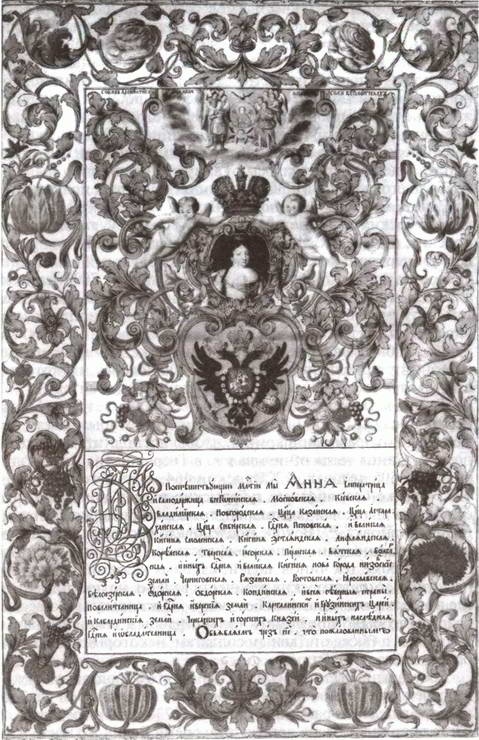 Поспѣшествующею м҃стїю мы Анна Імператрица
и самодержица всеросїйская, Московская, Кїевская,
Владимїрская, Новгородская, Ц҃рца Казанская, Ц҃рца Астра
ханская, Ц҃рца Сибирская, Г҃дрня Псковская, и великая
Кн҃гиня Смоленская, Кн҃гиня Эстляндская, Лифляндская,
Корелская, Тверская, Югорская, Пермская, Вятская, Болгар
ская, и иныхъ Г҃дрня и великая Кн҃гиня Нова города низовскїе
земли, Черниговская, Рязанская, Ростовская, Ярославская,
Бѣлоозерская, Удорская, Обдорская, Кондинская, и всея сѣверныя страны
Повелителница, и Г҃дрня Иверскїе земли, Карталинскихъ и Грузинскихъ Царей,
и Кабардинскїе земли, Черкаскихъ и горскихъ Князей, и иныхъ наслѣдная
Г҃дрня и обладателница. Объявляемъ чрезъ сїе, что пожалованнымъ